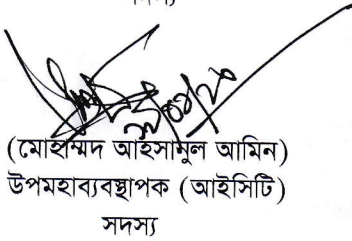 (মোহাম্মদ আহসামুল আমিন)
উপমহাব্যবস্থাপক (আইসিটি)
সদস্য